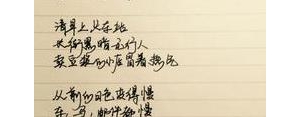 清早上火车站
长街黑暗无行人
卖豆浆的小店冒着热气
从前的日色变得慢
车，马，邮件都慢